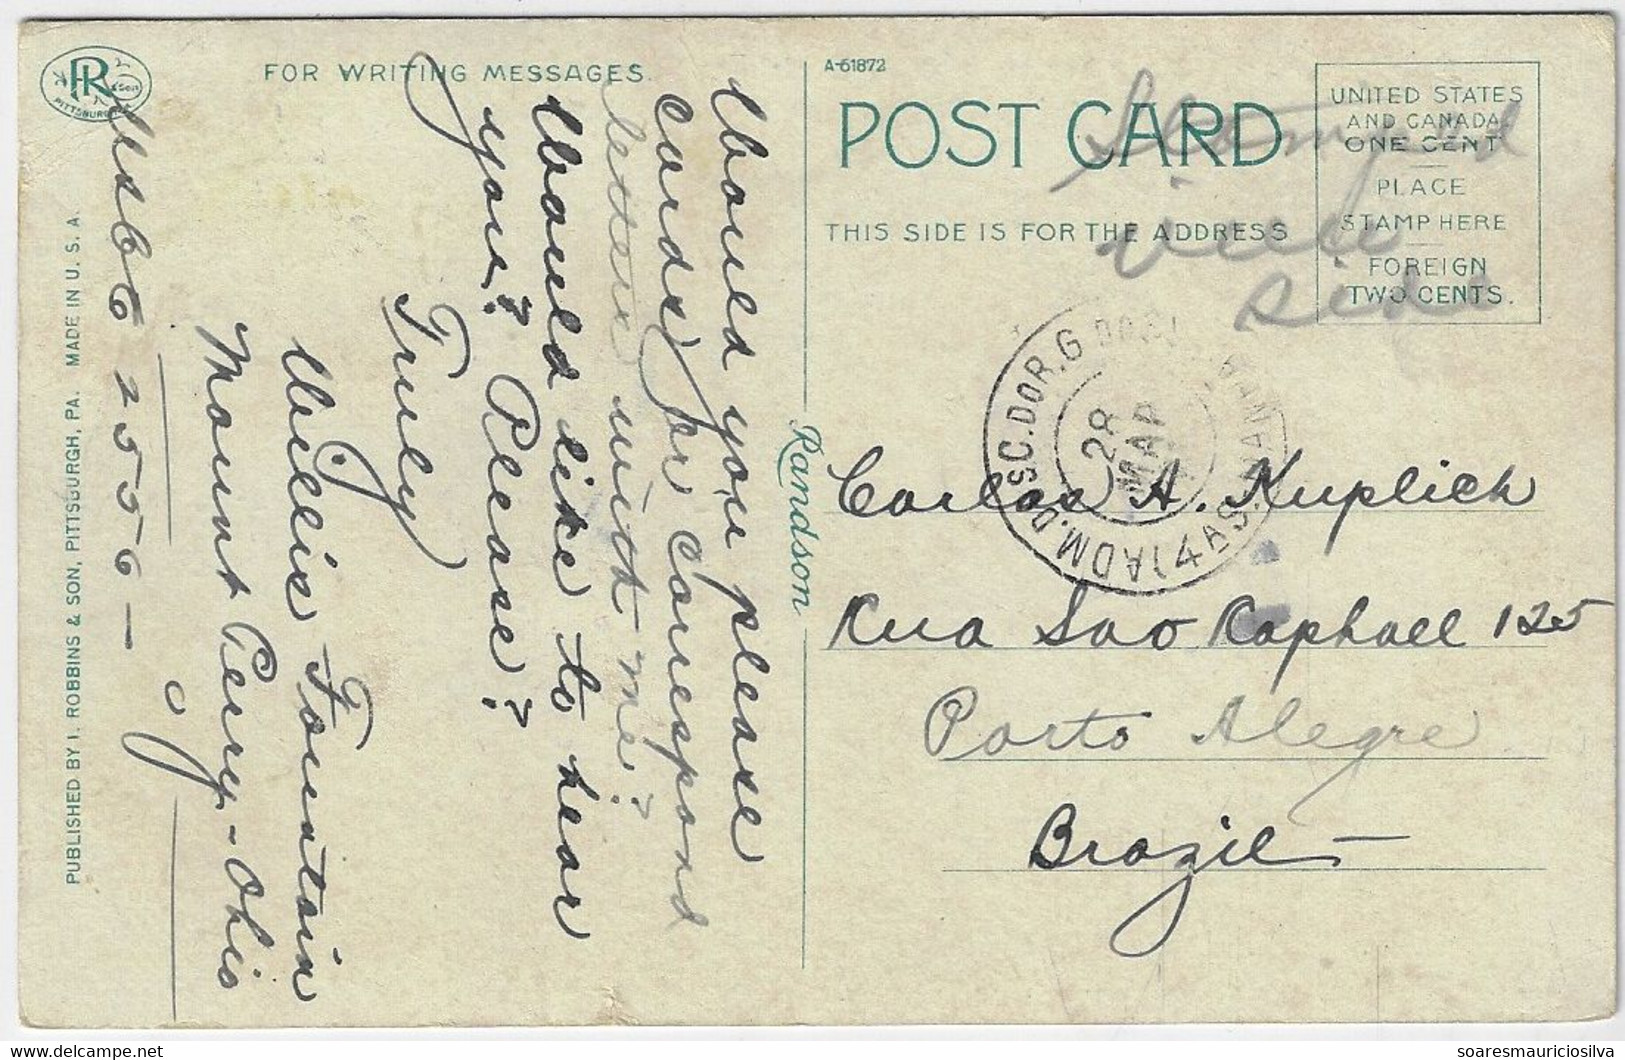 PR
& Son
PITTSBURGH
FOR WRITING MESSAGES.
Would you please
cards for correspond
letters with me?
Would like to hear
you? Please?
Truly
Willis Fountain
Mount Perry - Ohio
25556 -
PUBLISHED BY I. ROBBINS & SON, PITTSBURGH, PA. MADE IN U. S. A.
Randson
A-61872
POST CARD
THIS SIDE IS FOR THE ADDRESS
Stamped
view
side
UNITED STATES
AND CANADA
ONE CENT
PLACE
STAMP HERE
FOREIGN
TWO CENTS.
28
MAR
Carlos A. Kuplich
Rua Sao Raphael 125
Porto Alegre
Brazil -
soaresmauriciosilva